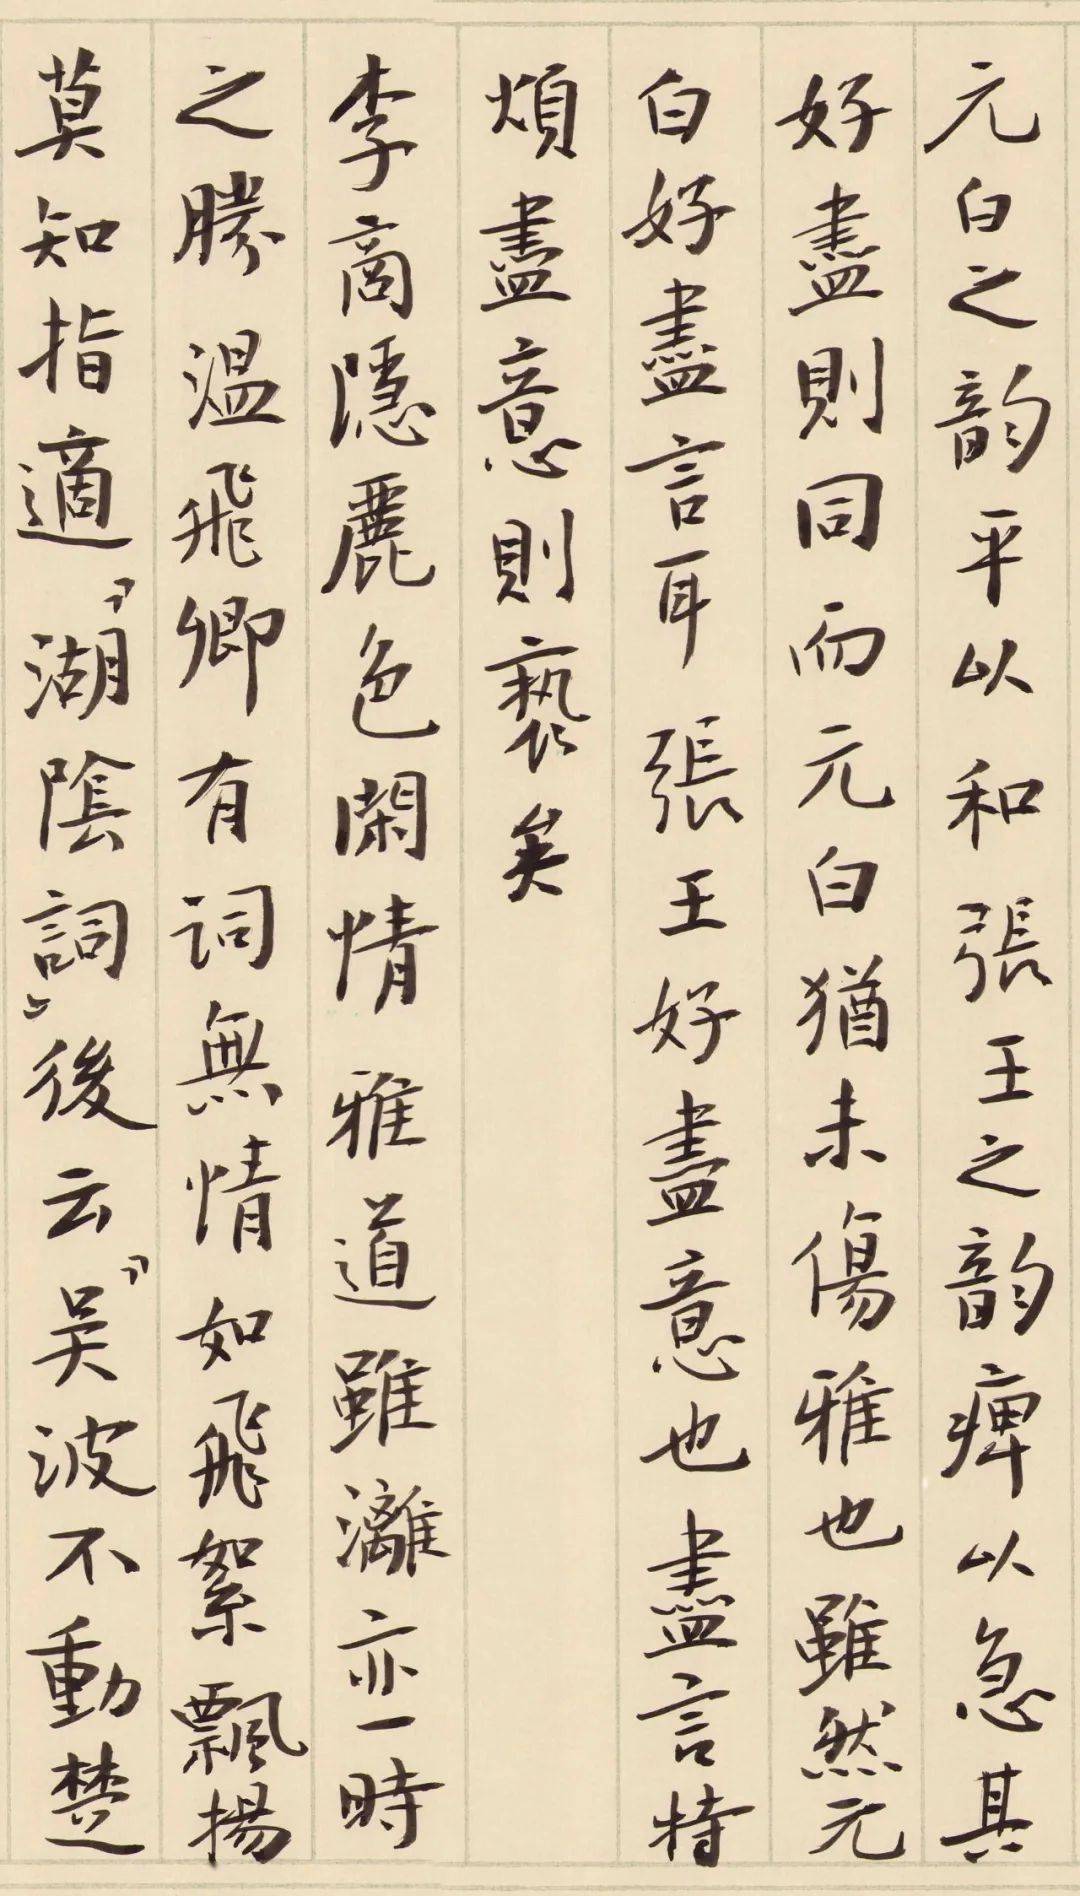 元白之韵平以和張王之韵痺以急其
好盡則同而元白猶未傷雅也雖然元
白好盡言耳張王好盡意也盡言特
煩盡意則褻矣
李商隱麗色閑情雅道雖漓亦一時
之勝温飛卿有词無情如飛絮飄揚
莫知指適『湖陰詞』後云『吴波不動楚